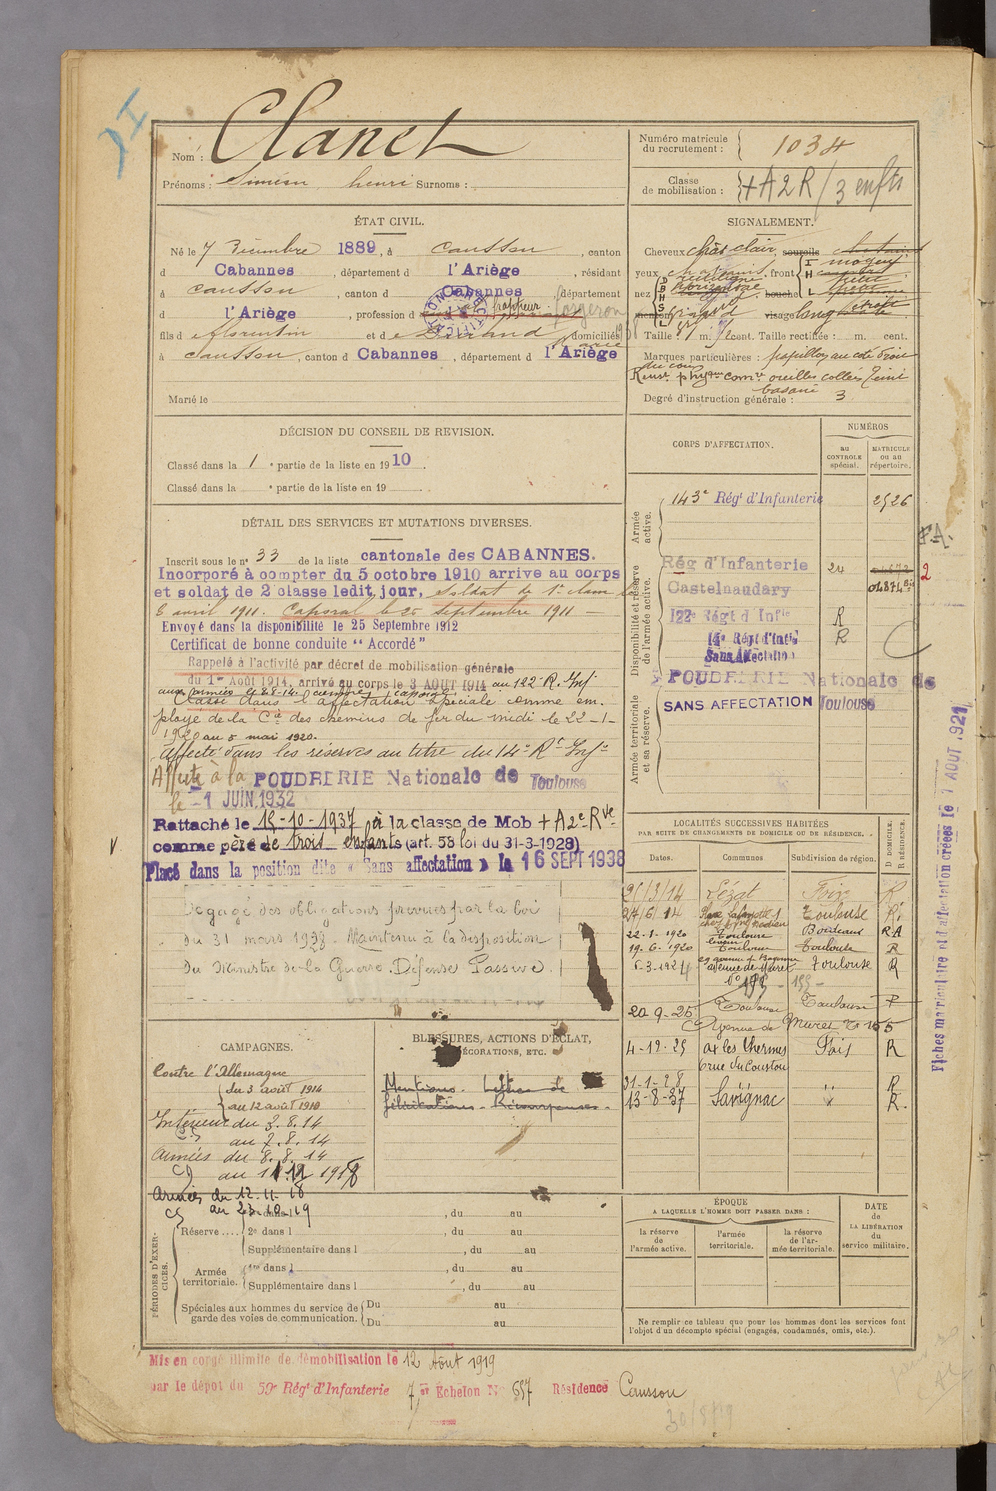 Nom : Clanet
Prénoms : Siméon henri Surnoms :
Numéro matricule du recrutement : 1034
Classe de mobilisation : + A2R / 3 enfts
ÉTAT CIVIL.
Né le 7 Décembre 1889, à Caussou, canton
d Cabannes, département d l'Ariège, résidant
à Caussou, canton d Cabannes, département
d l'Ariège, profession d frappeur forgeron
fils d Florentin et d domiciliés
à Caussou, canton d Cabannes, département d l'Ariège
Marié le
SIGNALEMENT.
Cheveux chât clair, sourcils
yeux front moyen
nez bouche
menton visage long
Taille : 1 m. cent. Taille rectifiée : m. cent.
Marques particulières : papillon au coté droit
du cou
Renst phyques comres oreilles collées Teint
basané
Degré d'instruction générale : 3
DÉCISION DU CONSEIL DE REVISION.
Classé dans la 1e partie de la liste en 1910.
Classé dans la e partie de la liste en 19
DÉTAIL DES SERVICES ET MUTATIONS DIVERSES.
Inscrit sous le n° 33 de la liste cantonale des CABANNES.
Incorporé à compter du 5 octobre 1910 arrive au corps
et soldat de 2 classe ledit jour, Soldat de 1e classe le
8 avril 1911. Caporal le 25 septembre 1911 —
Envoyé dans la disponibilité le 25 Septembre 1912
Certificat de bonne conduite "Accordé"
Rappelé à l'activité par décret de mobilisation générale
du 1er Août 1914, arrivé au corps le 3 AOUT 1914 au 122e R. Inf
aux armées le 8.8.14.
Classé dans l'affectation spéciale comme em-
ployé de la Cie des chemins de fer du midi le 22-1-
1920 au 5 mai 1920.
Affecté dans les réserves au titre du 14e Rt Infie
Affecté à la POUDRERIE Nationale de Toulouse
le -1 JUIN 1932
Rattaché le 15-10-1937 à la classe de Mob + A2e Rve
comme père de trois enfants (art. 58 loi du 31-3-1928)
Placé dans la position dite « Sans affectation » le 16 SEPT 1938
Dégagé des obligations prévues par la loi
du 31 mars 1928. Maintenu à la disposition
du Ministre de la Guerre. Défense Passive.
CORPS D'AFFECTATION.
NUMÉROS
AU CONTROLE spécial.
MATRICULE OU AU répertoire.
Armée active.
143e Régt d'Infanterie 2526
Disponibilité et réserve de l'armée active.
Rég d'Infanterie 24
Castelnaudary 04874 Bis
122e Régt d'Infie R
14e Régt d'Infie R
Sans Affectation
Armée territoriale et sa réserve.
POUDRERIE Nationale de
SANS AFFECTATION Toulouse
P.A.
2
LOCALITÉS SUCCESSIVES HABITÉES
PAR SUITE DE CHANGEMENTS DE DOMICILE OU DE RÉSIDENCE.
Dates. Communes Subdivision de région. D DOMICILE. R RÉSIDENCE.
21/3/14 Lézat Foix R
27/6/14 Place Lafayette 1 Toulouse R.
22-1-1920 Toulouse Bordeaux RA
19-6-1920 Toulouse Toulouse R
5-3-1924 avenue de Muret Toulouse R
N° 155 - 155 -
20-9-25 Toulouse Toulouse R
Avenue de Muret N° 155
4-12-25 ax les Thermes Foix R
6 rue du Coustou
31-1-28 " R
13-8-37 Savignac " R.
Fiches matriculaire et d'affectation créées le 1 AOUT 1921
CAMPAGNES.
Contre l'Allemagne
du 3 août 1914
au 12 août 1919
Intérieur du 3.8.14
au 7.8.14
Armées du 8.8.14
au 11.11 1918
Armées du 12.11.18
au 23.10.19
BLESSURES, ACTIONS D'ÉCLAT,
DÉCORATIONS, ETC.
Mentions. Lettres de
félicitations. Récompenses.
PÉRIODES D'EXERCICES.
Réserve .... 1re dans l , du au
2e dans l , du au
Supplémentaire dans l , du au
Armée territoriale. 1re dans l , du au
Supplémentaire dans l , du au
Spéciales aux hommes du service de garde des voies de communication. Du au
Du au
ÉPOQUE
A LAQUELLE L'HOMME DOIT PASSER DANS :
la réserve de l'armée active.
l'armée territoriale.
la réserve de l'armée territoriale.
DATE DE LA LIBÉRATION du service militaire.
Ne remplir ce tableau que pour les hommes dont les services font
l'objet d'un décompte spécial (engagés, condamnés, omis, etc.).
Mis en congé illimité de démobilisation le 12 Août 1919
par le dépôt du 59e Régt d'Infanterie 7e Echelon N° 657 Résidence Caussou
30/8/19